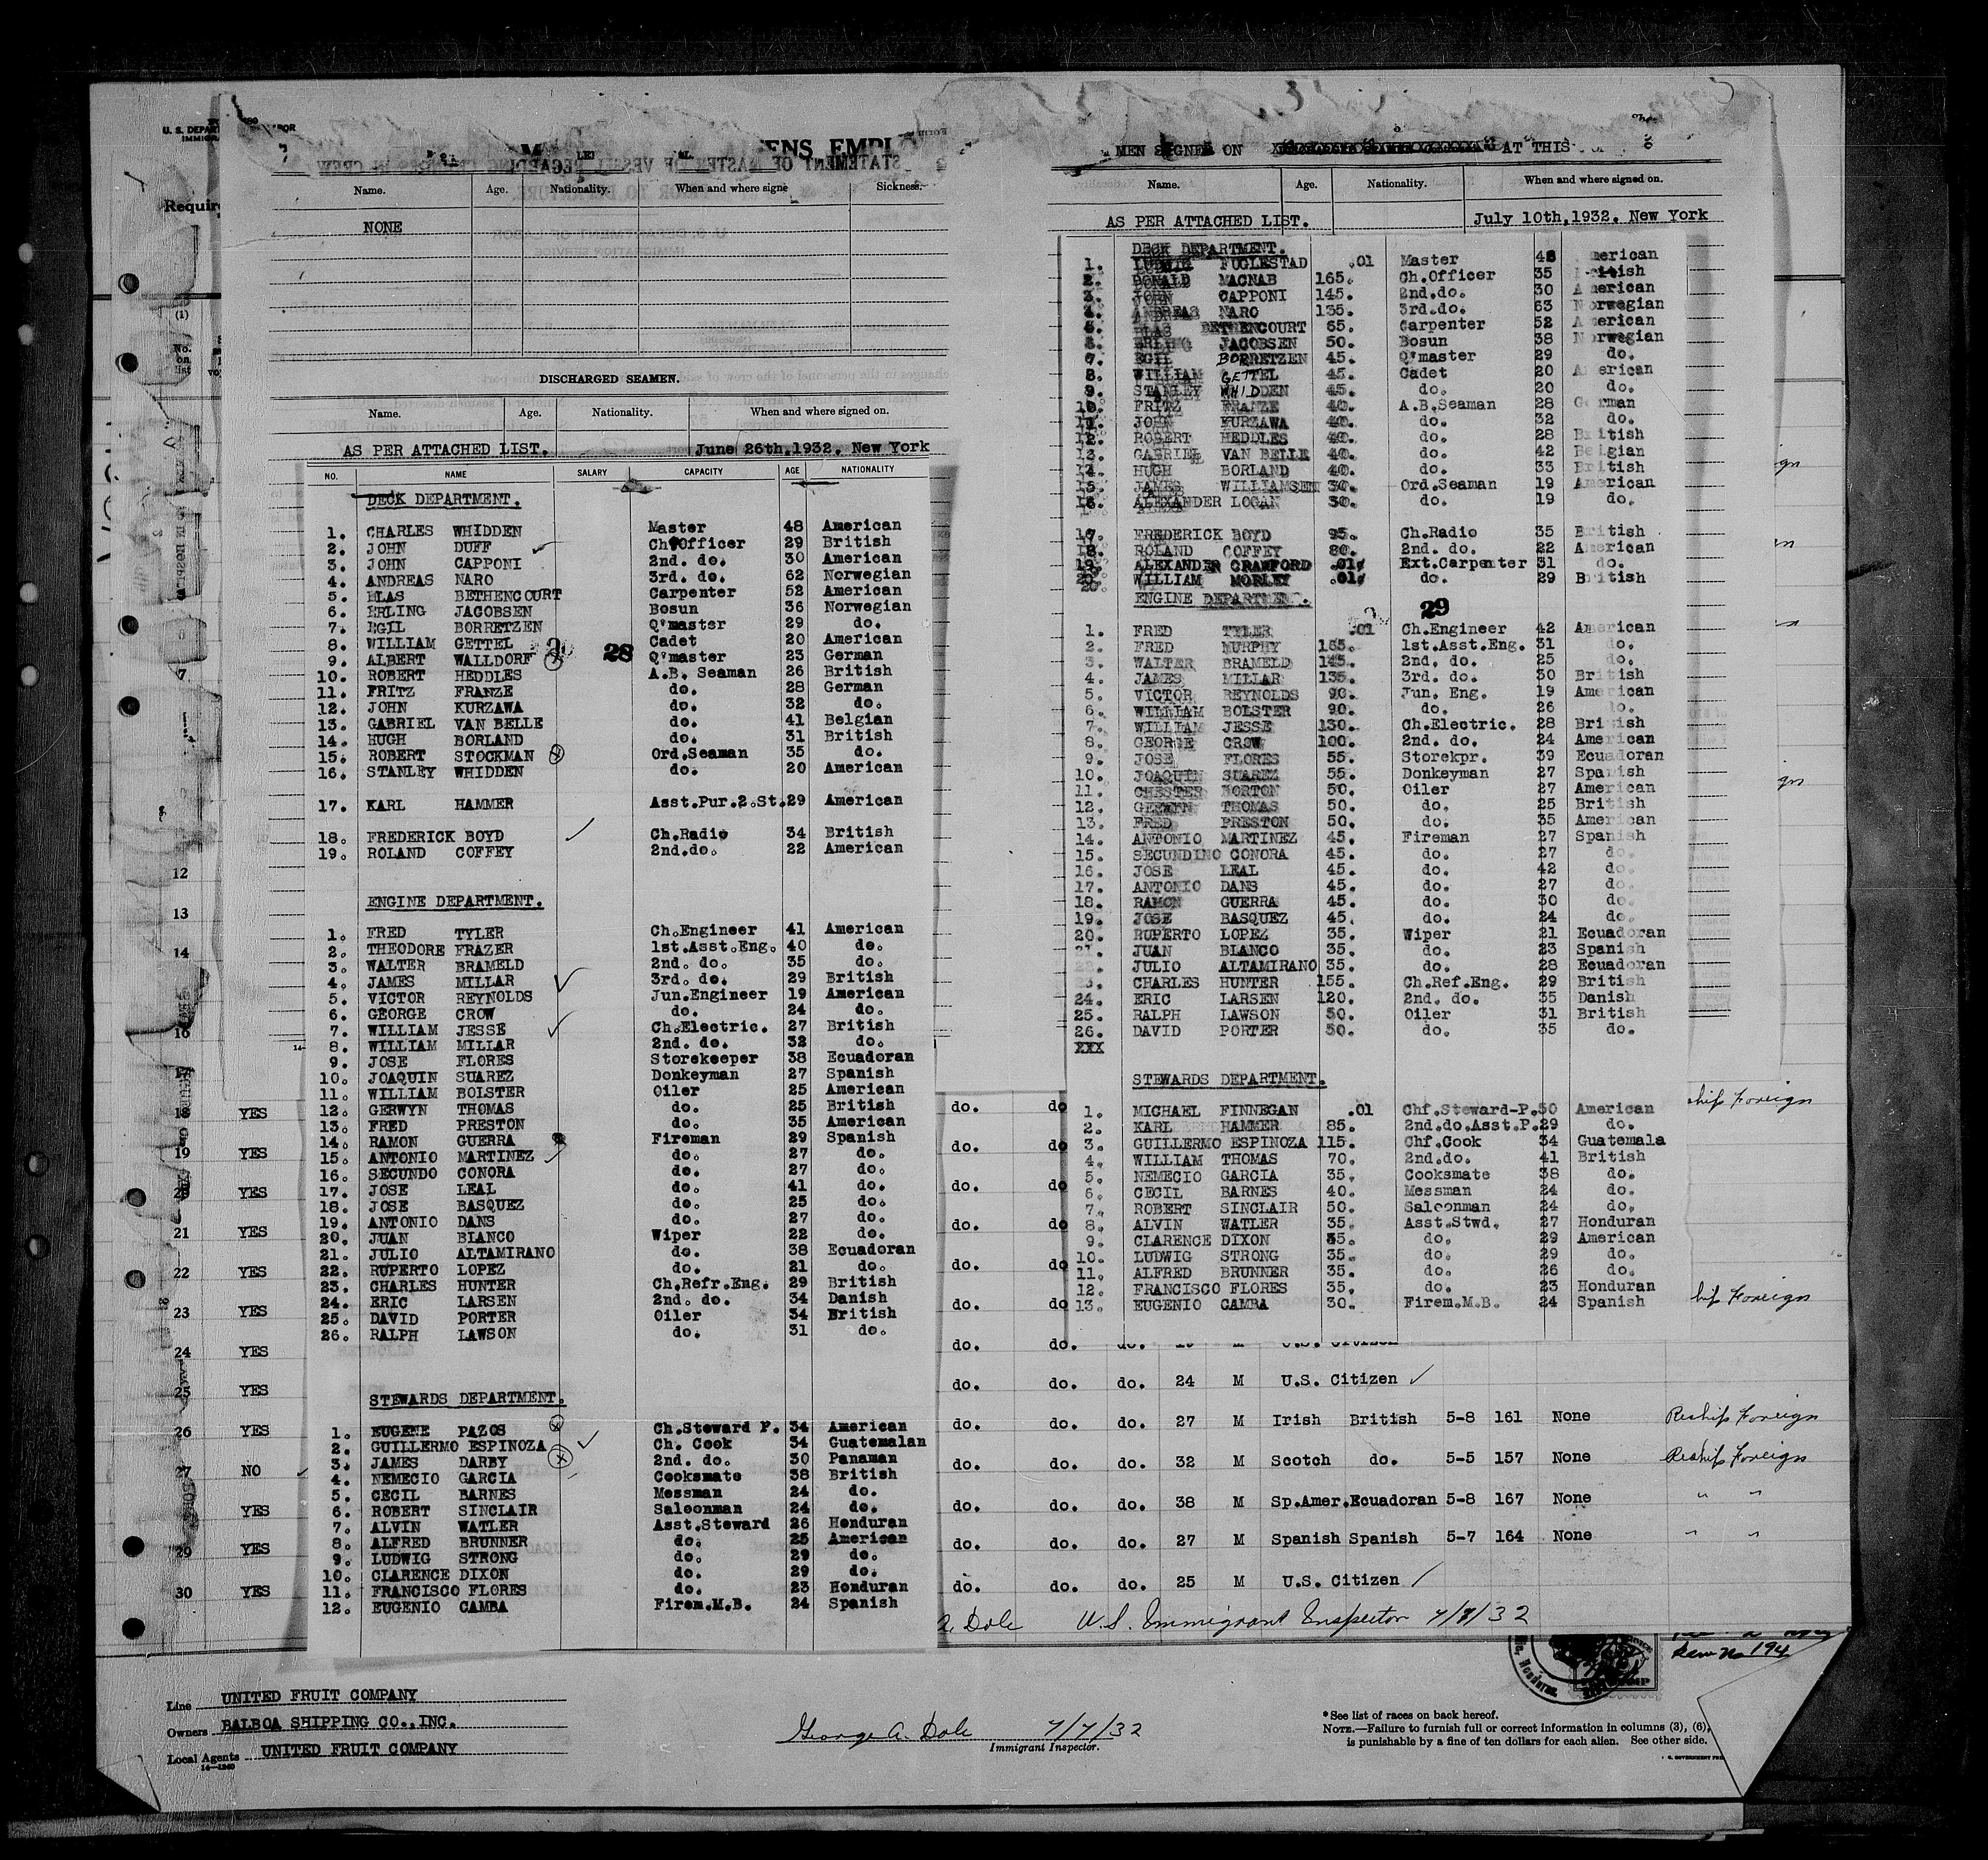 U. S. DEPART
IMMIGRA
Require
ENS EMPLO
STATEMENT OF MASTER OF VESSEL REGARDING CHANGES IN CREW
Name. Age. Nationality. When and where signe Sickness.
NONE
DISCHARGED SEAMEN.
Name. Age. Nationality. When and where signed on.
AS PER ATTACHED LIST. June 26th,1932. New York
NO. NAME SALARY CAPACITY AGE NATIONALITY
DECK DEPARTMENT.
1. CHARLES WHIDDEN Master 48 American
2. JOHN DUFF Ch.Officer 29 British
3. JOHN CAPPONI 2nd. do. 30 American
4. ANDREAS NARO 3rd. do. 62 Norwegian
5. BLAS BETHENCOURT Carpenter 52 American
6. ERLING JACOBSEN Bosun 36 Norwegian
7. EGIL BORRETZEN Q'master 29 do.
8. WILLIAM GETTEL Cadet 20 American
9. ALBERT WALLDORF 28 Q'master 23 German
10. ROBERT HEDDLES A.B. Seaman 26 British
11. FRITZ FRANZE do. 28 German
12. JOHN KURZAWA do. 32 do.
13. GABRIEL VAN BELLE do. 41 Belgian
14. HUGH BORLAND do. 31 British
15. ROBERT STOCKMAN Ord.Seaman 35 do.
16. STANLEY WHIDDEN do. 20 American
17. KARL HAMMER Asst.Pur.2.St. 29 American
18. FREDERICK BOYD Ch.Radio 34 British
19. ROLAND COFFEY 2nd.do. 22 American
ENGINE DEPARTMENT.
1. FRED TYLER Ch.Engineer 41 American
2. THEODORE FRAZER 1st.Asst.Eng. 40 do.
3. WALTER BRAMELD 2nd. do. 35 do.
4. JAMES MILLAR 3rd. do. 29 British
5. VICTOR REYNOLDS Jun.Engineer 19 American
6. GEORGE CROW do. 24 do.
7. WILLIAM JESSE Ch.Electric. 27 British
8. WILLIAM MILLAR 2nd. do. 32 do.
9. JOSE FLORES Storekeeper 38 Ecuadoran
10. JOAQUIN SUAREZ Donkeyman 27 Spanish
11. WILLIAM BOLSTER Oiler 25 American
12. GERWYN THOMAS do. 25 British
13. FRED PRESTON do. 35 American
14. RAMON GUERRA Fireman 29 Spanish
15. ANTONIO MARTINEZ do. 27 do.
16. SECUNDO CONORA do. 27 do.
17. JOSE LEAL do. 41 do.
18. JOSE BASQUEZ do. 25 do.
19. ANTONIO DANS do. 27 do.
20. JUAN BLANCO Wiper 22 do.
21. JULIO ALTAMIRANO do. 38 Ecuadoran
22. RUPERTO LOPEZ do. 21 do.
23. CHARLES HUNTER Ch.Refr.Eng. 29 British
24. ERIC LARSEN 2nd. do. 34 Danish
25. DAVID PORTER Oiler 34 British
26. RALPH LAWSON do. 31 do.
STEWARDS DEPARTMENT.
1. EUGENE PAZOS Ch.Steward P. 34 American
2. GUILLERMO ESPINOZA Ch. Cook 34 Guatemalan
3. JAMES DARBY 2nd. do. 30 Panaman
4. NEMECIO GARCIA Cooksmate 38 British
5. CECIL BARNES Messman 24 do.
6. ROBERT SINCLAIR Saloonman 24 do.
7. ALVIN WATLER Asst.Steward 26 Honduran
8. ALFRED BRUNNER do. 25 American
9. LUDWIG STRONG do. 29 do.
10. CLARENCE DIXON do. 29 do.
11. FRANCISCO FLORES do. 23 Honduran
12. EUGENIO CAMBA Firem.M.B. 24 Spanish
MEN SIGNED ON AT THIS
Name. Age. Nationality. When and where signed on.
AS PER ATTACHED LIST. July 10th,1932. New York
DECK DEPARTMENT.
1. LUDWIG FUGLESTAD .01 Master 48 American
2. DONALD MACNAB 165. Ch.Officer 35 British
3. JOHN CAPPONI 145. 2nd.do. 30 American
4. ANDREAS NARO 135. 3rd.do. 63 Norwegian
5. BLAS BETHENCOURT 65. Carpenter 52 American
6. ERLING JACOBSEN 50. Bosun 38 Norwegian
7. EGIL BORRETZEN 45. Q'master 29 do.
8. WILLIAM GETTEL 45. Cadet 20 American
9. STANLEY WHIDDEN 45. do. 20 do.
10. FRITZ FRANZE 40. A.B.Seaman 28 German
11. JOHN KURZAWA 40. do. 32 do.
12. ROBERT HEDDLES 40. do. 28 British
13. GABRIEL VAN BELLE 40. do. 42 Belgian
14. HUGH BORLAND 40. do. 33 British
15. JAMES WILLIAMSEN 30. Ord.Seaman 19 American
16. ALEXANDER LOGAN 30. do. 19 do.
17. FREDERICK BOYD 95. Ch.Radio 35 British
18. ROLAND COFFEY 80. 2nd. do. 22 American
19. ALEXANDER CRAWFORD .01¢ Ext.Carpenter 31 do.
20. WILLIAM MORLEY .01¢ do. 29 British
ENGINE DEPARTMENT.
29
1. FRED TYLER .01 Ch.Engineer 42 American
2. FRED MURPHY 165. 1st.Asst.Eng. 31 do.
3. WALTER BRAMELD 145. 2nd. do. 25 do.
4. JAMES MILLAR 135. 3rd. do. 30 British
5. VICTOR REYNOLDS 90. Jun. Eng. 19 American
6. WILLIAM BOLSTER 90. do. 26 do.
7. WILLIAM JESSE 130. Ch.Electric. 28 British
8. GEORGE CROW 100. 2nd. do. 24 American
9. JOSE FLORES 55. Storekpr. 39 Ecuadoran
10. JOAQUIN SUAREZ 55. Donkeyman 27 Spanish
11. CHESTER NORTON 50. Oiler 27 American
12. GERWYN THOMAS 50. do. 25 British
13. FRED PRESTON 50. do. 35 American
14. ANTONIO MARTINEZ 45. Fireman 27 Spanish
15. SECUNDINO CONORA 45. do. 27 do.
16. JOSE LEAL 45. do. 42 do.
17. ANTONIO DANS 45. do. 27 do.
18. RAMON GUERRA 45. do. 30 do.
19. JOSE BASQUEZ 45. do. 24 do.
20. RUPERTO LOPEZ 35. Wiper 21 Ecuadoran
21. JUAN BLANCO 35. do. 23 Spanish
22. JULIO ALTAMIRANO 35. do. 28 Ecuadoran
23. CHARLES HUNTER 155. Ch.Ref.Eng. 29 British
24. ERIC LARSEN 120. 2nd. do. 35 Danish
25. RALPH LAWSON 50. Oiler 31 British
26. DAVID PORTER 50. do. 35 do.
XXX
STEWARDS DEPARTMENT.
1. MICHAEL FINNEGAN .01 Chf.Steward-P. 50 American
2. KARL HAMMER 85. 2nd.do.Asst.P. 29 do.
3. GUILLERMO ESPINOZA 115. Chf.Cook 34 Guatemala
4. WILLIAM THOMAS 70. 2nd.do. 41 British
5. NEMECIO GARCIA 35. Cooksmate 38 do.
6. CECIL BARNES 40. Messman 24 do.
7. ROBERT SINCLAIR 50. Saloonman 24 do.
8. ALVIN WATLER 35. Asst.Stwd. 27 Honduran
9. CLARENCE DIXON 35. do. 29 American
10. LUDWIG STRONG 35. do. 29 do.
11. ALFRED BRUNNER 35. do. 26 do.
12. FRANCISCO FLORES 35. do. 23 Honduran
13. EUGENIO CAMBA 30. Firem.M.B. 24 Spanish
12
13
14
16
18 YES do. do ship Foreign
19 YES do. do
20 YES do. do
21 YES do. do
22 YES do. do
23 YES do. do hip Foreign
24 YES do. do. do. M U.S. Citizen
25 YES do. do. do. 24 M U.S. Citizen ✓
26 YES do. do. do. 27 M Irish British 5-8 161 None Reship Foreign
27 NO do. do. do. 32 M Scotch do. 5-5 157 None Reship Foreign
YES do. do. do. 38 M Sp.Amer. Ecuadoran 5-8 167 None " "
29 YES do. do. do. 27 M Spanish Spanish 5-7 164 None " "
30 YES do. do. do. 25 M U.S. Citizen ✓
A. Dole U.S. Immigrant Inspector 7/7/32
Line UNITED FRUIT COMPANY
Owners BALBOA SHIPPING CO.,INC.
Local Agents UNITED FRUIT COMPANY
14—1240
George A. Dole 7/7/32
Immigrant Inspector.
194
*See list of races on back hereof.
NOTE.—Failure to furnish full or correct information in columns (3), (6),
is punishable by a fine of ten dollars for each alien. See other side.